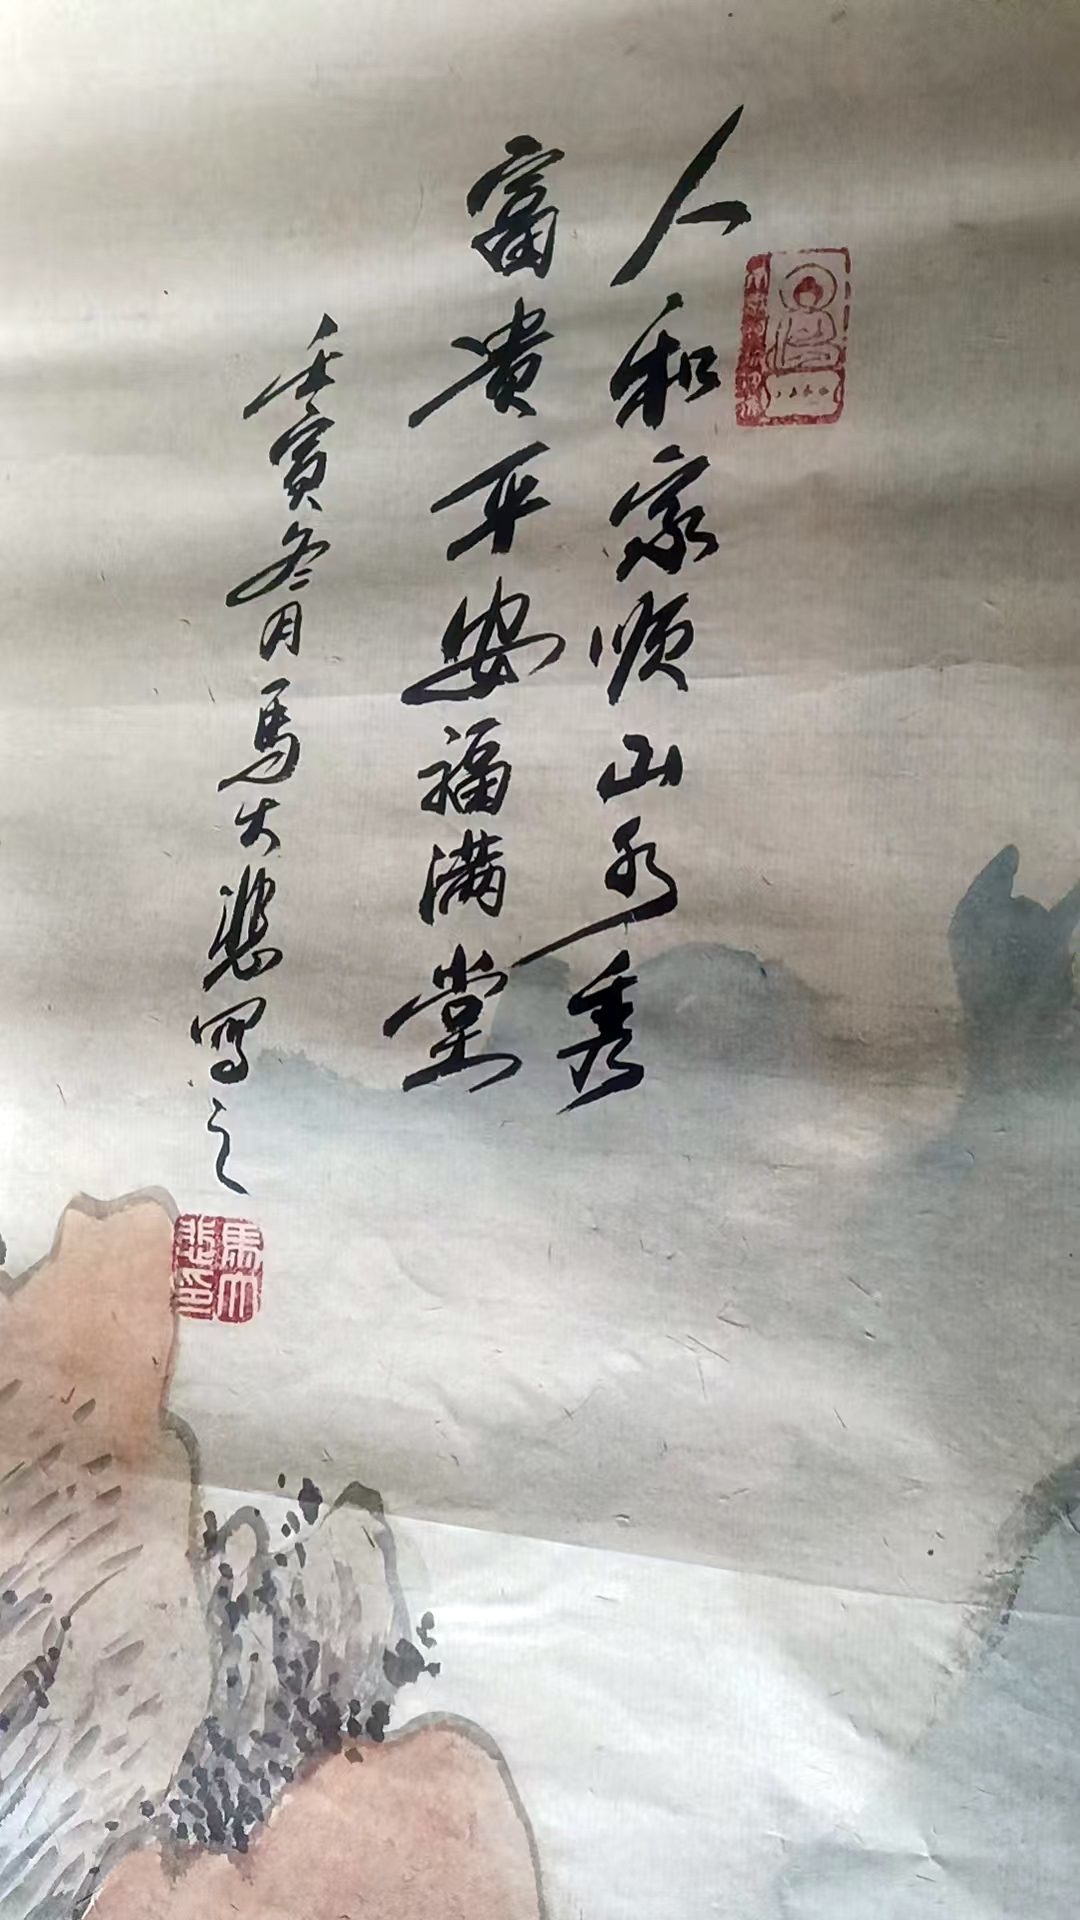 人和家顺山水秀
富贵平安福满堂
壬寅冬月馬大悲写之
馬大悲印